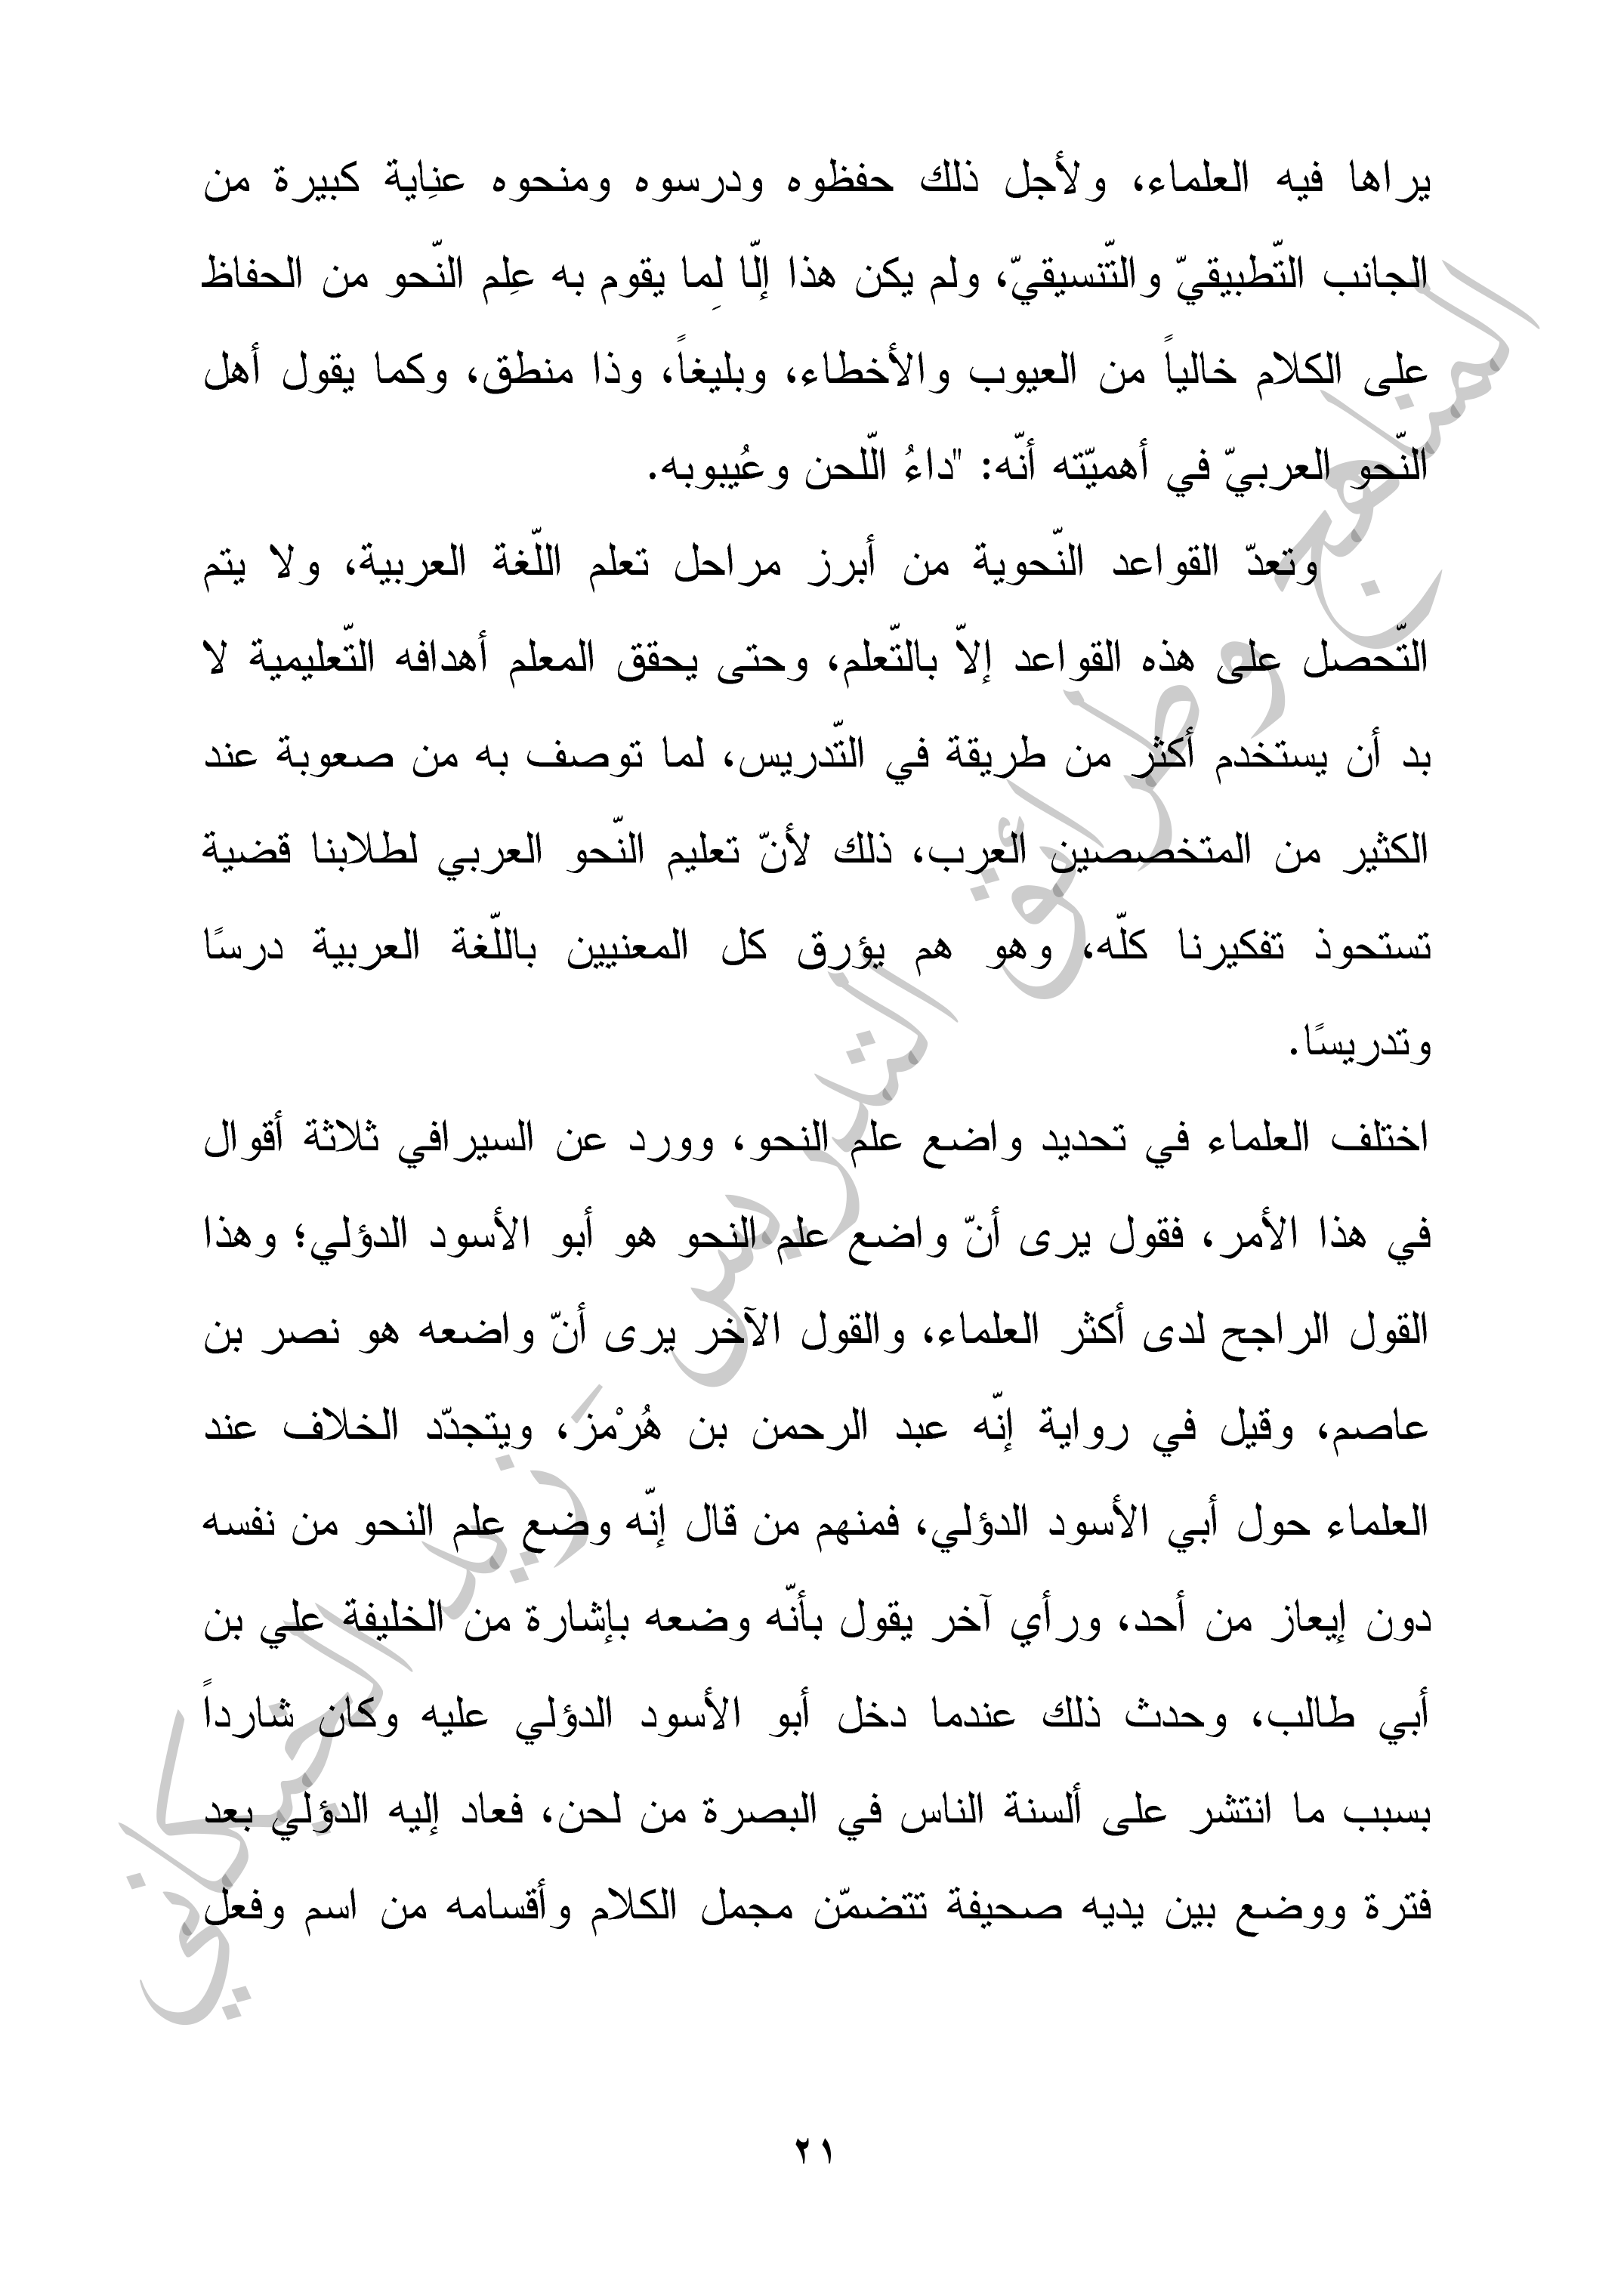 يراها فيه العلماء، ولأجل ذلك حفظوه ودرسوه ومنحوه عنِاية كبيرة من
الجانب التّطبيقيّ والتّنسيقيّ، ولم يكن هذا إلّا لِما يقوم به عِلم النّحو من الحفاظ
على الكلام خالياً من العيوب والأخطاء، وبليغاً، وذا منطق، وكما يقول أهل
النّحو العربيّ في أهميّته أنّه: "داءُ الّلحن وعُيبوبه.
وتعدّ القواعد النّحوية من أبرز مراحل تعلم اللّغة العربية، ولا يتم
التّحصل على هذه القواعد إلاّ بالتّعلم، وحتى يحقق المعلم أهدافه التّعليمية لا
بد أن يستخدم أكثر من طريقة في التّدريس، لما توصف به من صعوبة عند
الكثير من المتخصصين العرب، ذلك لأنّ تعليم النّحو العربي لطلابنا قضية
تستحوذ تفكيرنا كلّه، وهو هم يؤرق كل المعنيين باللّغة العربية درسًا
وتدريسًا.
اختلف العلماء في تحديد واضع علم النحو، وورد عن السيرافي ثلاثة أقوال
في هذا الأمر، فقول يرى أنّ واضع علم النحو هو أبو الأسود الدؤلي؛ وهذا
القول الراجح لدى أكثر العلماء، والقول الآخر يرى أنّ واضعه هو نصر بن
عاصم، وقيل في رواية إنّه عبد الرحمن بن هُرْمزَ، ويتجدّد الخلاف عند
العلماء حول أبي الأسود الدؤلي، فمنهم من قال إنّه وضع علم النحو من نفسه
دون إيعاز من أحد، ورأي آخر يقول بأنّه وضعه بإشارة من الخليفة علي بن
أبي طالب، وحدث ذلك عندما دخل أبو الأسود الدؤلي عليه وكان شارداً
بسبب ما انتشر على ألسنة الناس في البصرة من لحن، فعاد إليه الدؤلي بعد
فترة ووضع بين يديه صحيفة تتضمّن مجمل الكلام وأقسامه من اسم وفعل
المناهج وطرائق التدريس - زيد الخيكاني
٢١